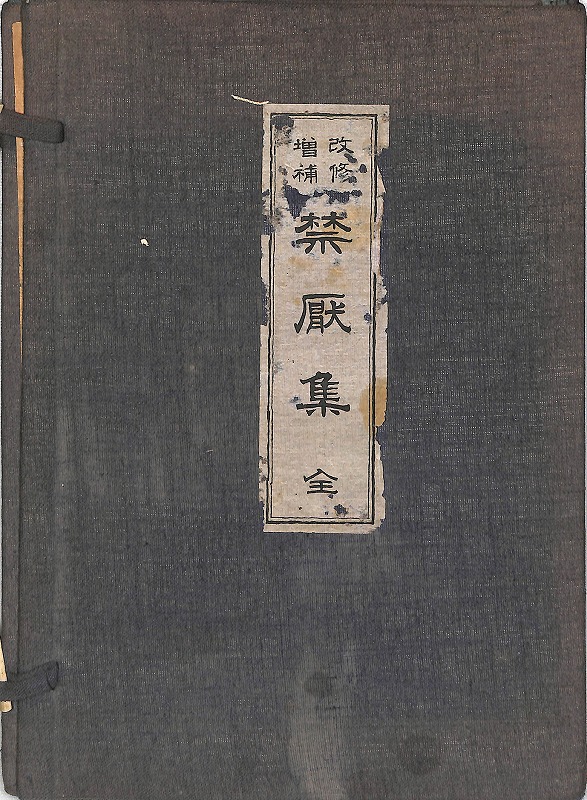 改修
増補
禁厭集 全